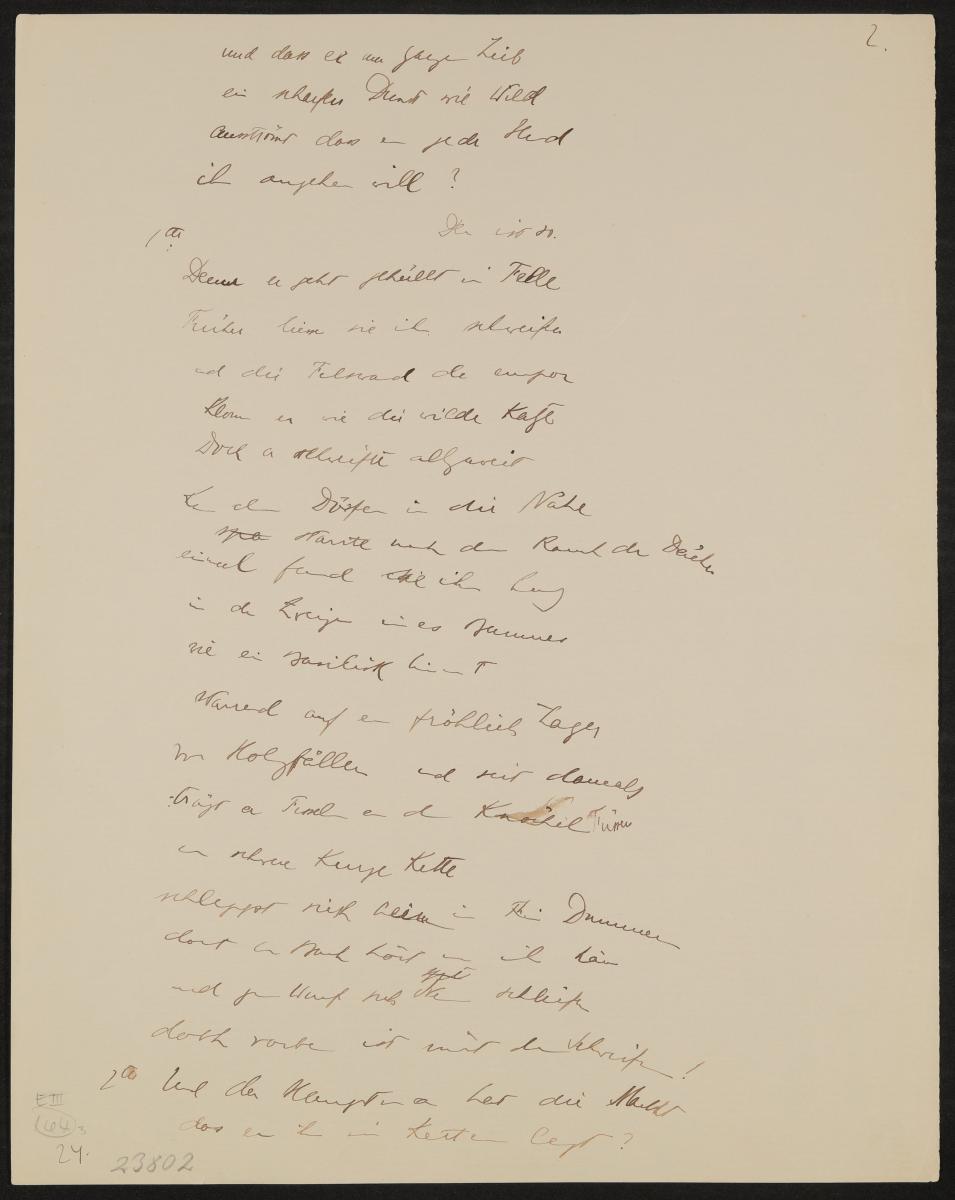 2.
und dass er am ganzen Leib
ein scharfer Dunst wie Wild
ausströmt dass ein jeder Hund
ihn angehen will?
Dem ist so.
1te
Denn er geht gehüllt in Felle
Früher liess sie ihn schweifen
und die Felswand da empor
Klomm er wie die wilde Katze
Doch er schweifte allzuweit
den Dörfern in die Nähe
starrte nach dem Rauch der Dächer
einmal fand sie ihn
in den Zweigen eines Baumes
wie ein Basilisk
starrend auf ein fröhlich Lager
von Holzfällern und seit damals
trägt er Fesseln an den Knöchel Füssen
eine schwere kurze Kette
schleppst sich in Dämmern
dort am Bach hört man ihn
und zum schleifen
doch vorbei ist mit dem Schweifen!
2te Und der Hauptmann hat die Macht
dass er ihn in Ketten legt?
E III
(64)
24.
23802